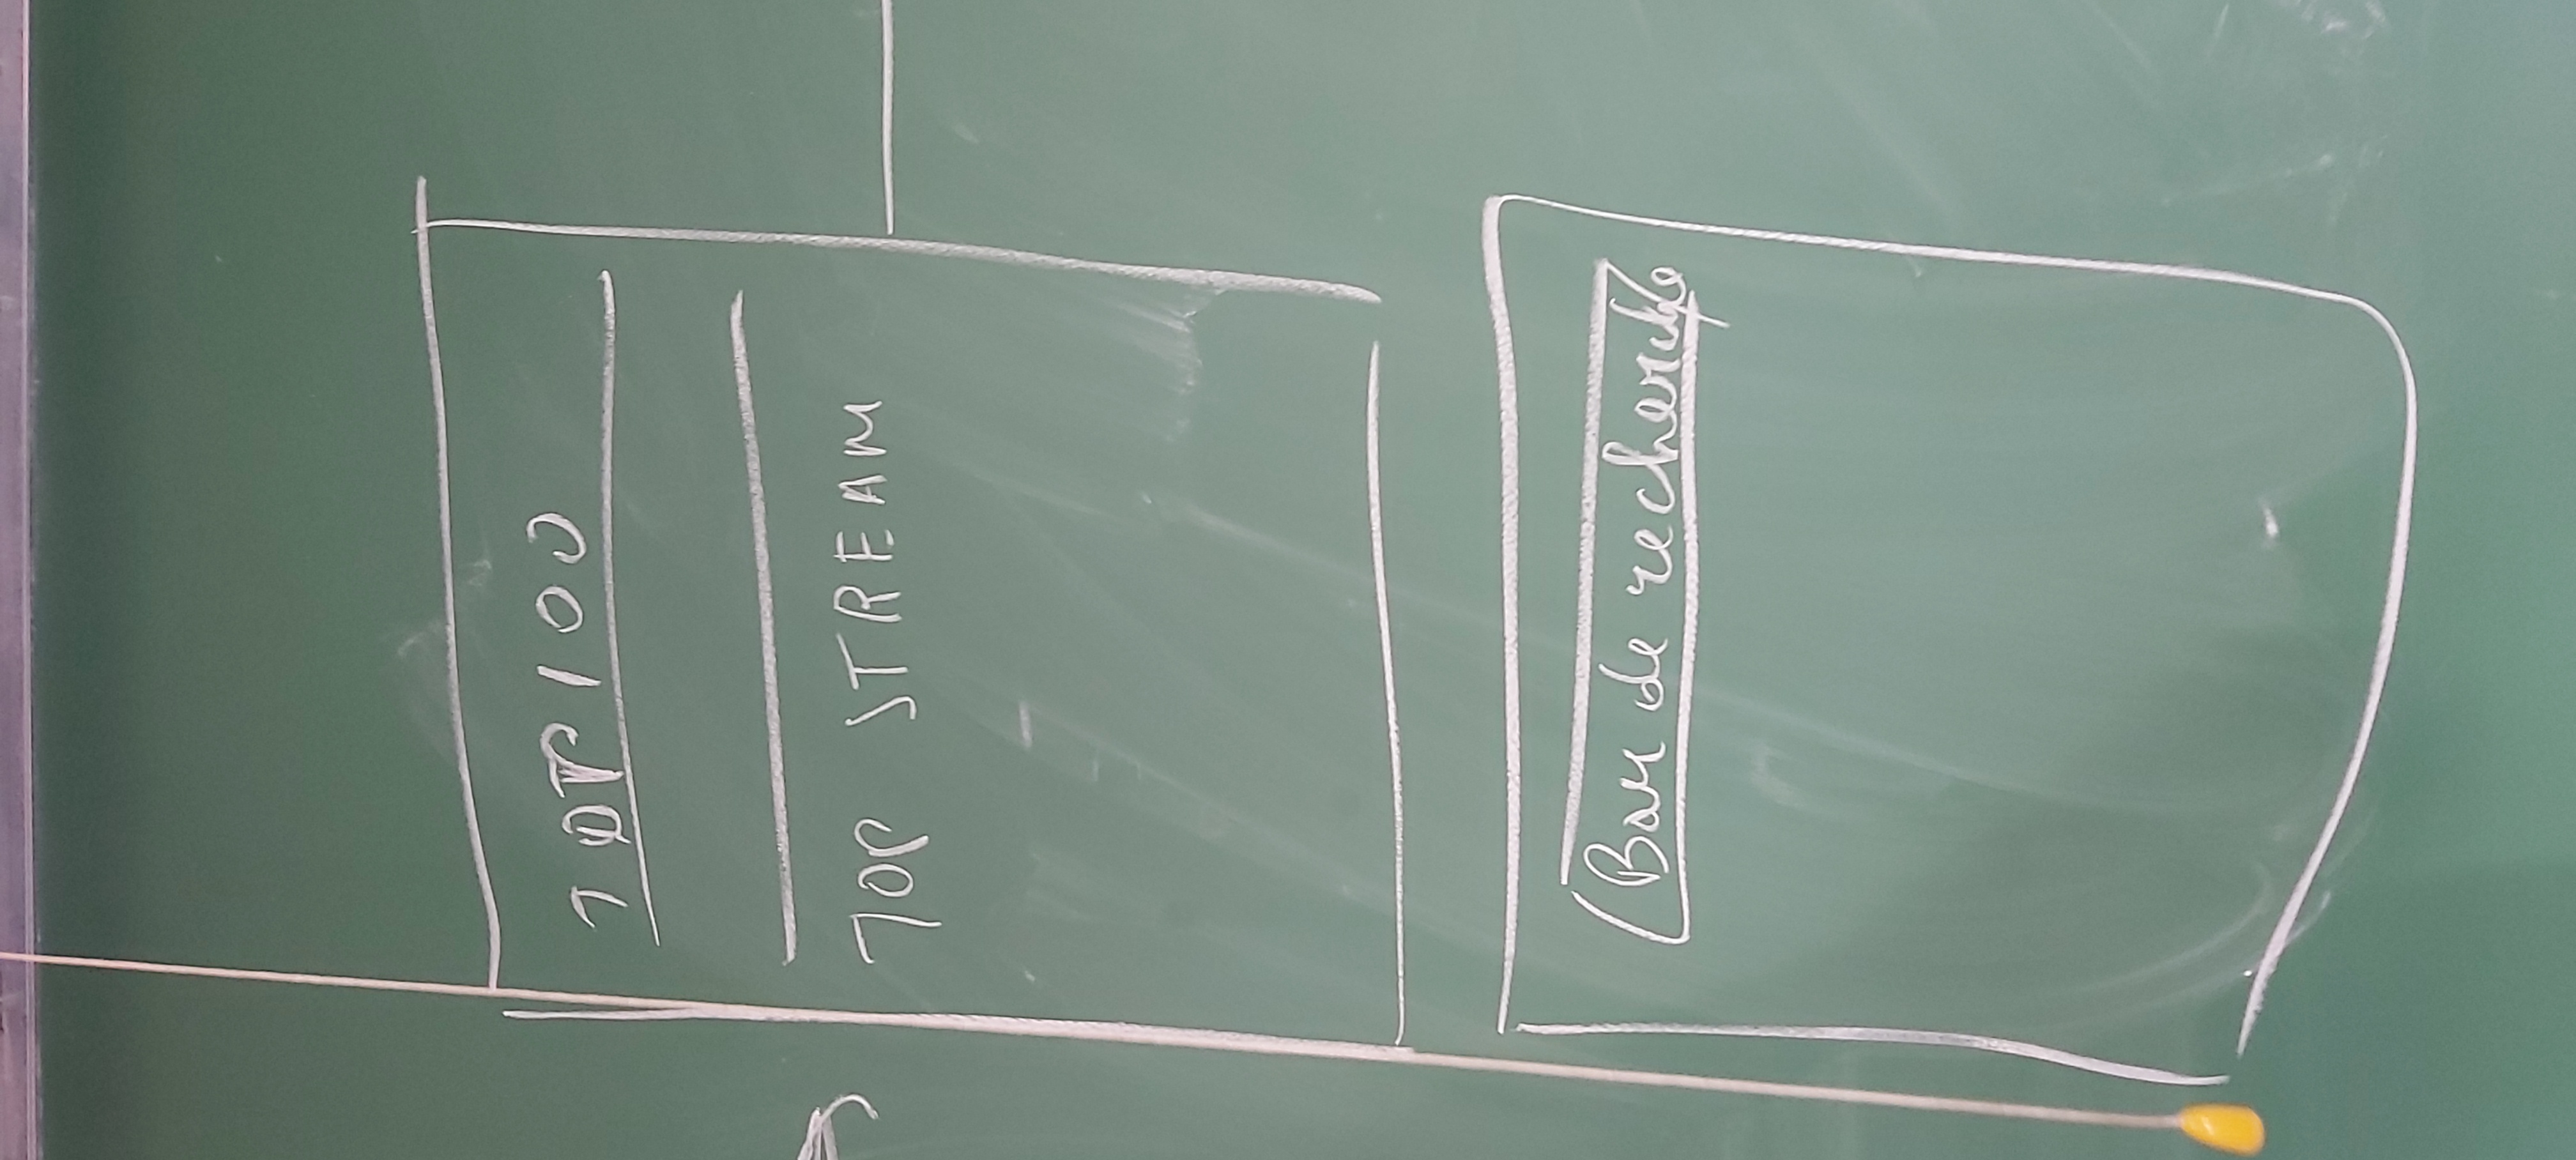 TOP 100
TOP STREAM
Barre de recherche